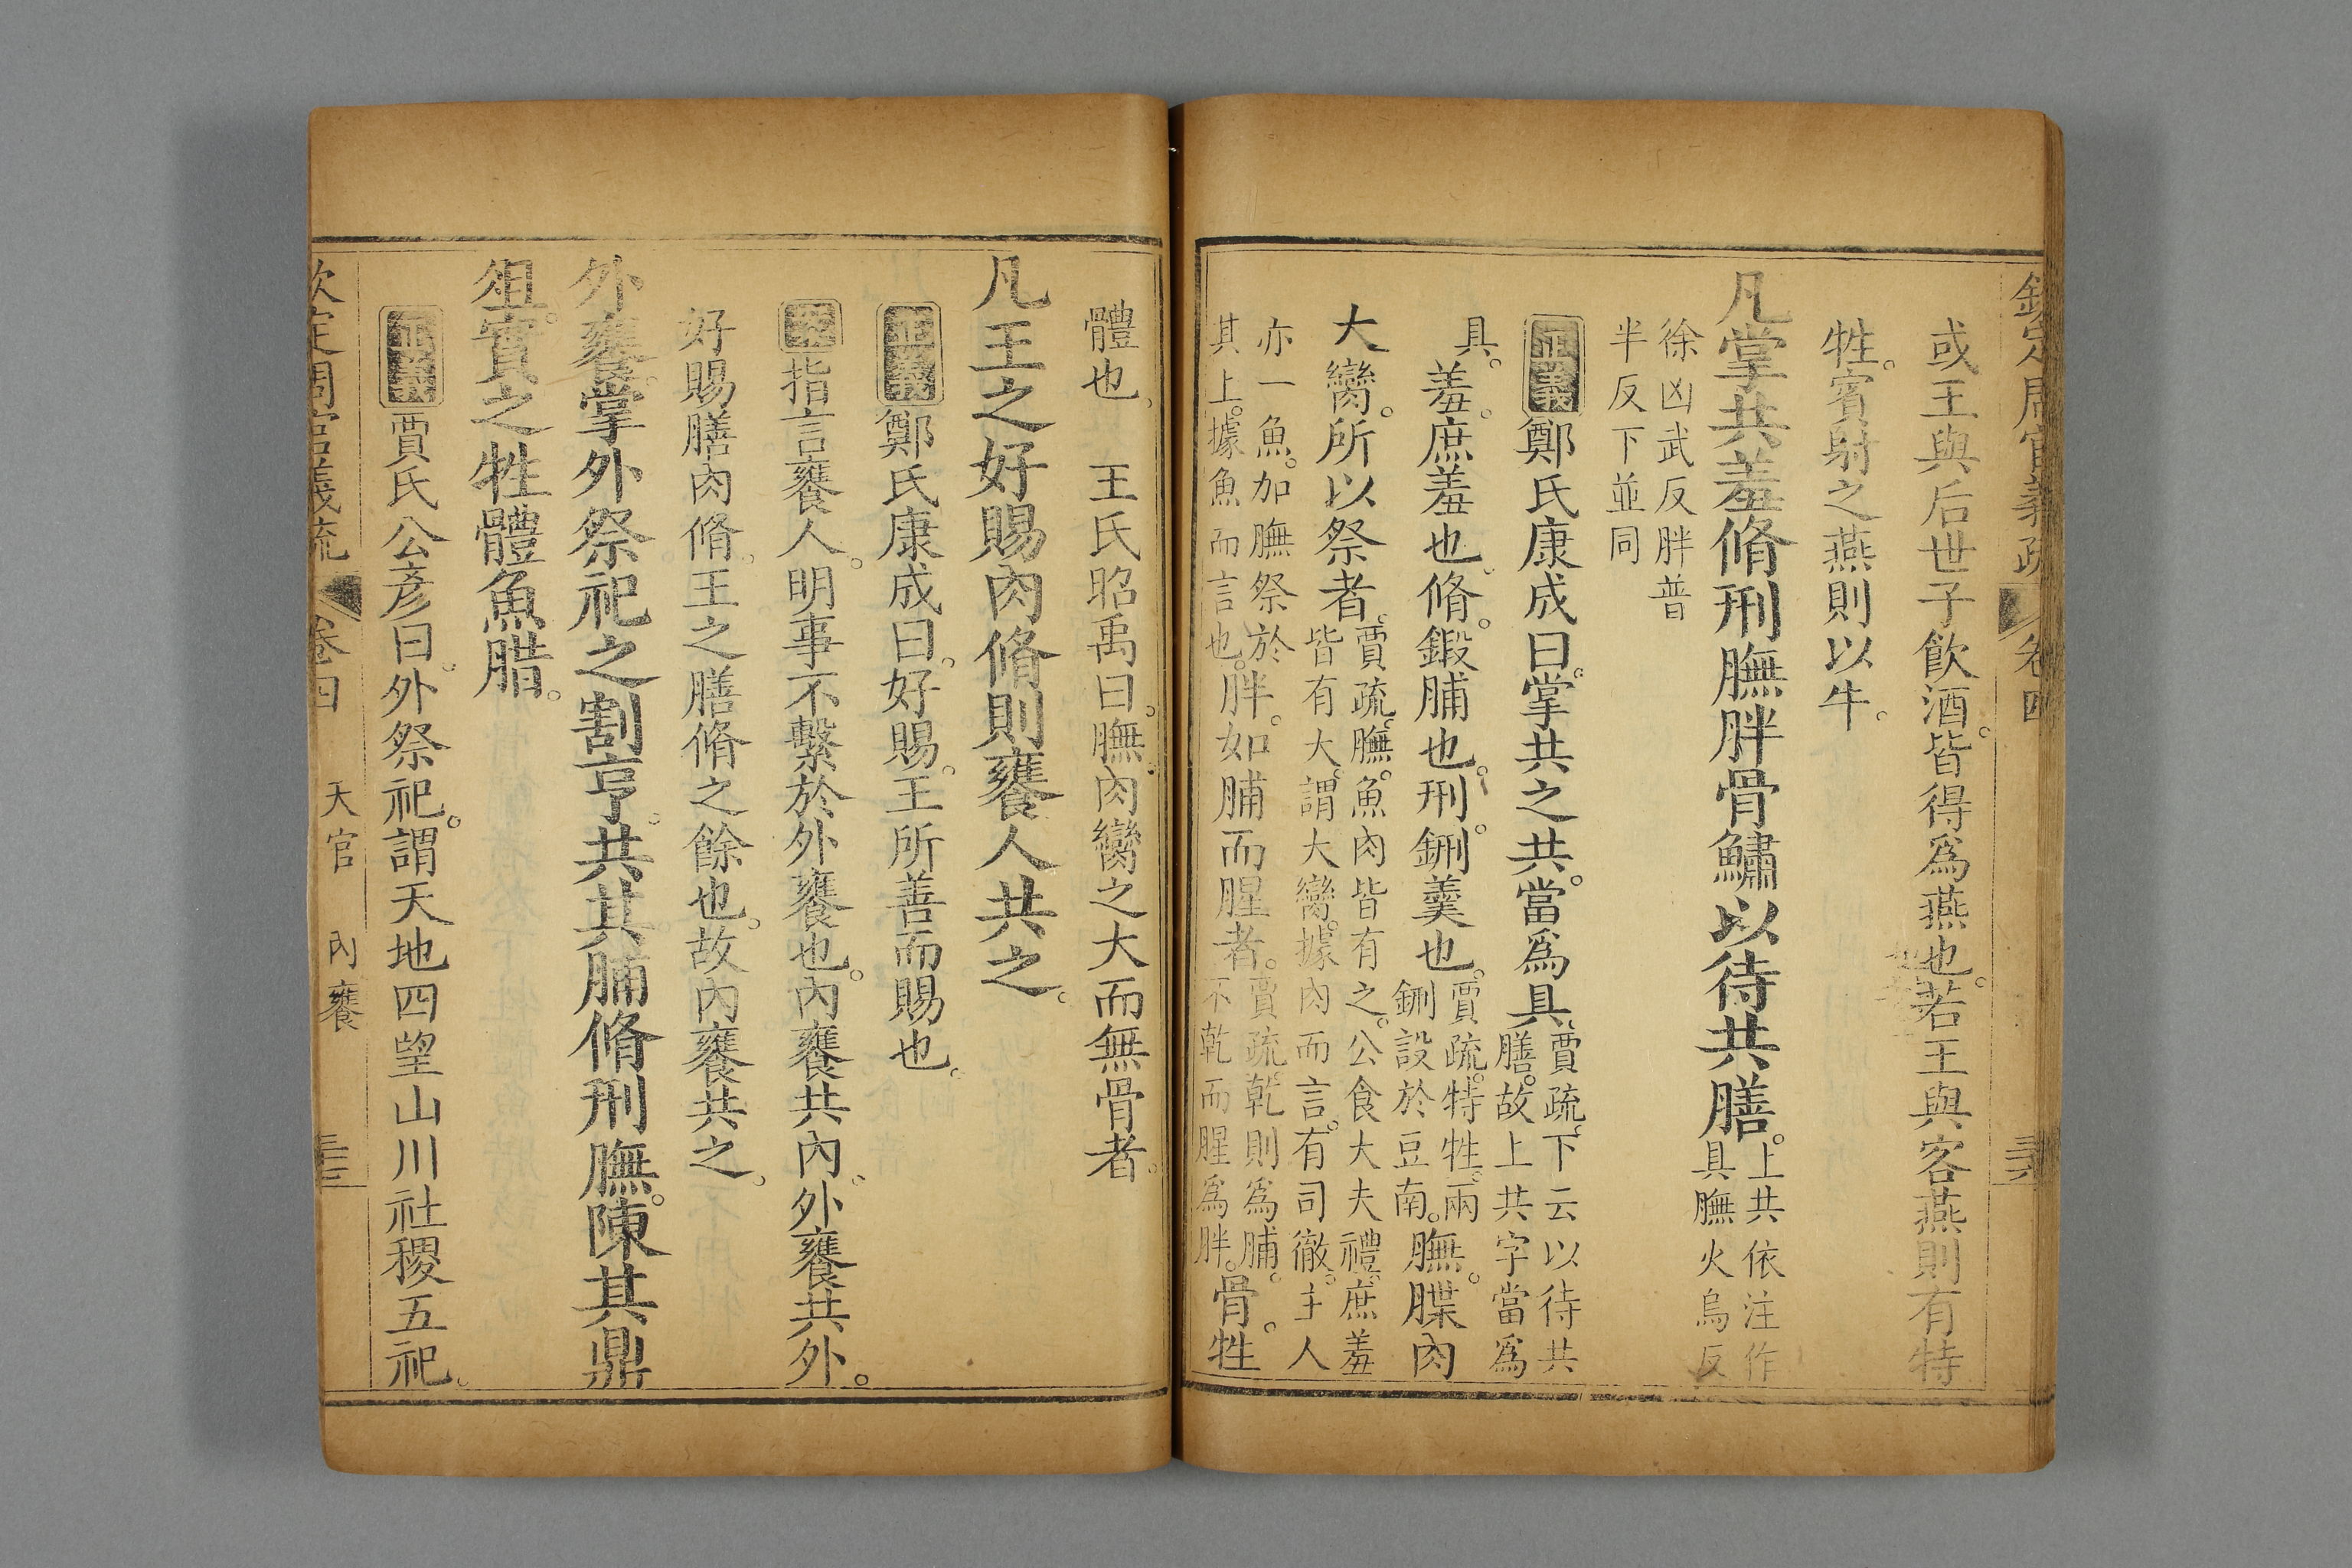 欽定周官義疏 卷四
或王與后世子飲酒。皆得爲燕也。若王與客燕則有特
牲。賓射之燕則以牛。
凡掌共羞脩刑膴胖骨鱐以待共膳。上共依注作
具膴火烏反
徐凶武反胖普
半反下並同
正義鄭氏康成曰。掌共之共。當爲具。賈疏。下云以待共
膳。故上共字當爲
具。羞。庶羞也。脩。鍛脯也。刑。鉶羹也。賈疏。特牲。兩
鉶設於豆南。膴。䐑肉
大臠。所以祭者。賈疏。膴。魚肉皆有之。公食大夫禮。庶羞
皆有大。謂大臠。據肉而言。有司徹。主人
亦一魚。加膴祭於
其上。據魚而言也。胖。如脯而腥者。賈疏。乾則爲脯。
不乾而腥爲胖。骨。牲
體也。 王氏昭禹曰。膴。肉臠之大而無骨者。
凡王之好賜肉脩則饔人共之。
正義鄭氏康成曰。好賜。王所善而賜也。
指言饔人。明事不繫於外饔也。內饔共內。外饔共外。
好賜膳肉脩。王之膳脩之餘也。故內饔共之。
外饔掌外祭祀之割亨。共其脯脩刑膴。陳其鼎
俎。實之牲體魚腊。
正義賈氏公彥曰。外祭祀。謂天地四望山川社稷五祀。
欽定周官義疏 卷四 天官 內饔